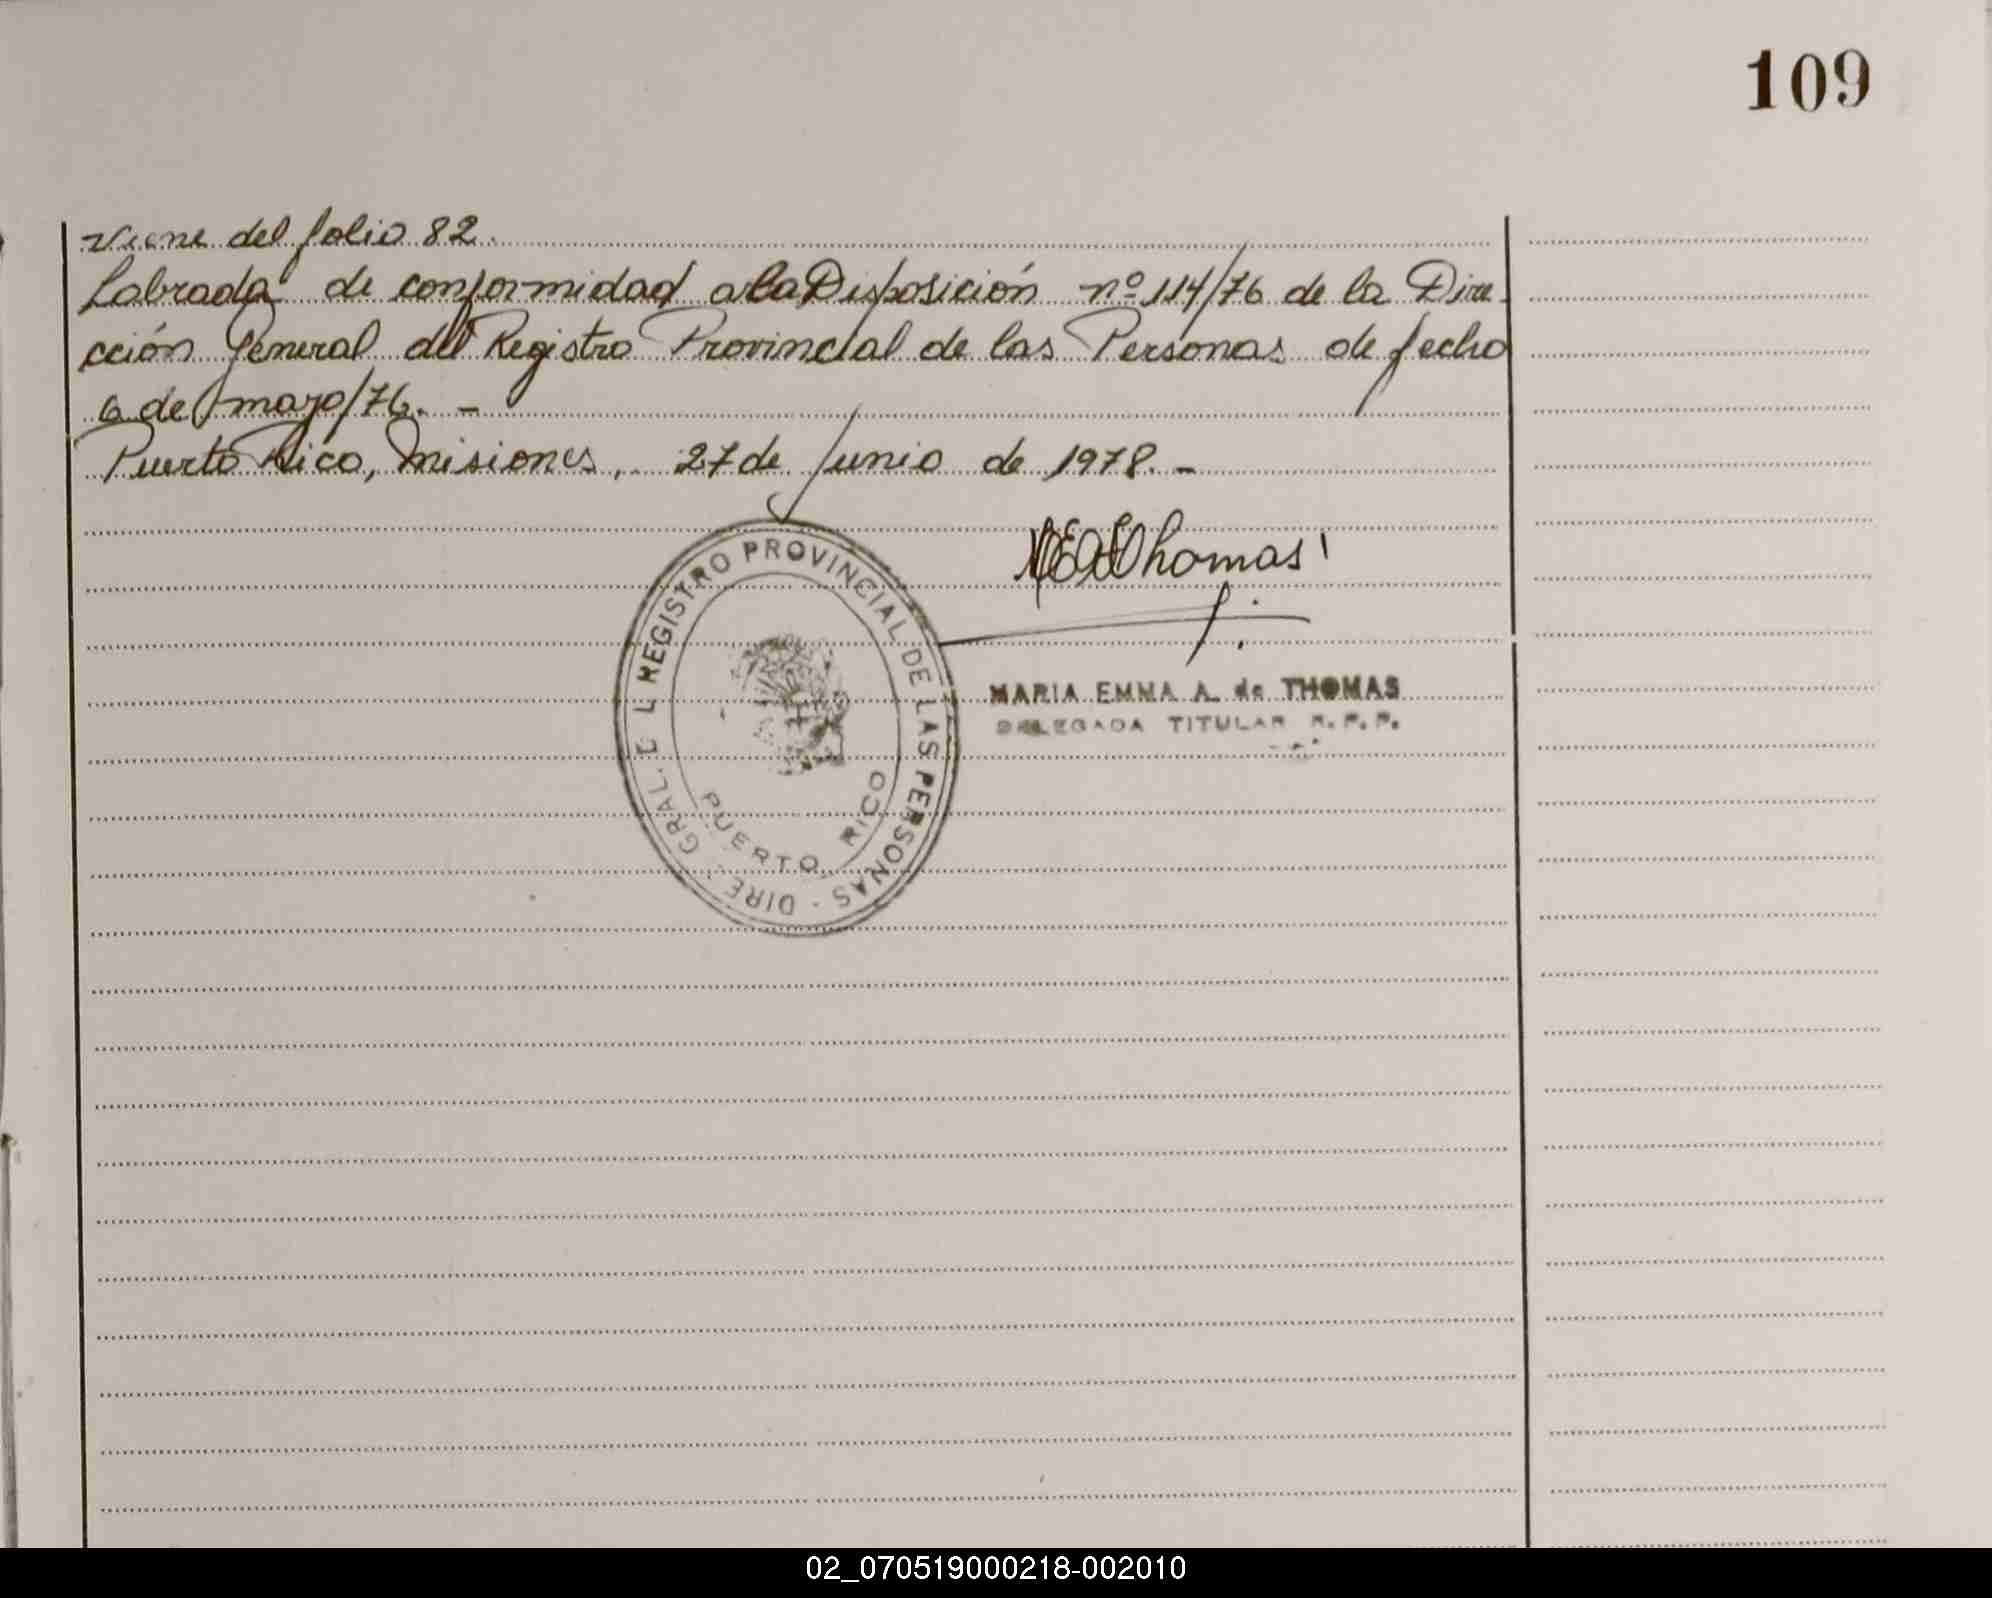 109
Viene del folio 82.
Labrada de conformidad a la Disposición nº 114/76 de la Dire-
cción General del Registro Provincial de las Personas de fecha
6 de mayo/76. -
Puerto Rico, Misiones, 27 de Junio de 1978. -
MEAdeThomas
DIRE. GRAL. DEL REGISTRO PROVINCIAL DE LAS PERSONAS -
PUERTO RICO
MARIA EMMA A. de THOMAS
DELEGADA TITULAR R. P. P.
02_070519000218-002010